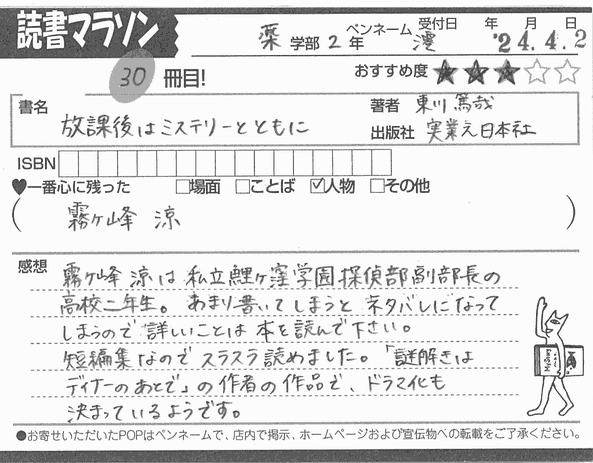 読書マラソン
薬 学部 2 年 ペンネーム 澪 受付日 年 月 日 '24.4.2
30 冊目! おすすめ度 ★★★☆☆
書名 放課後はミステリーとともに
著者 東川篤哉
出版社 実業之日本社
ISBN
♥一番心に残った □場面 □ことば ☑人物 □その他
( 霧ケ峰 涼 )
感想
霧ケ峰 涼は 私立鯉ヶ窪学園探偵部副部長の
高校二年生。 あまり書いてしまうと ネタバレになって
しまうので 詳しいことは 本を読んで下さい。
短編集なのでスラスラ読めました。「謎解きは
ディナーのあとで」の作者の作品で、ドラマ化も
決まっているようです。
●お寄せいただいたPOPはペンネームで、店内で掲示、ホームページおよび宣伝物への転載をご了承ください。